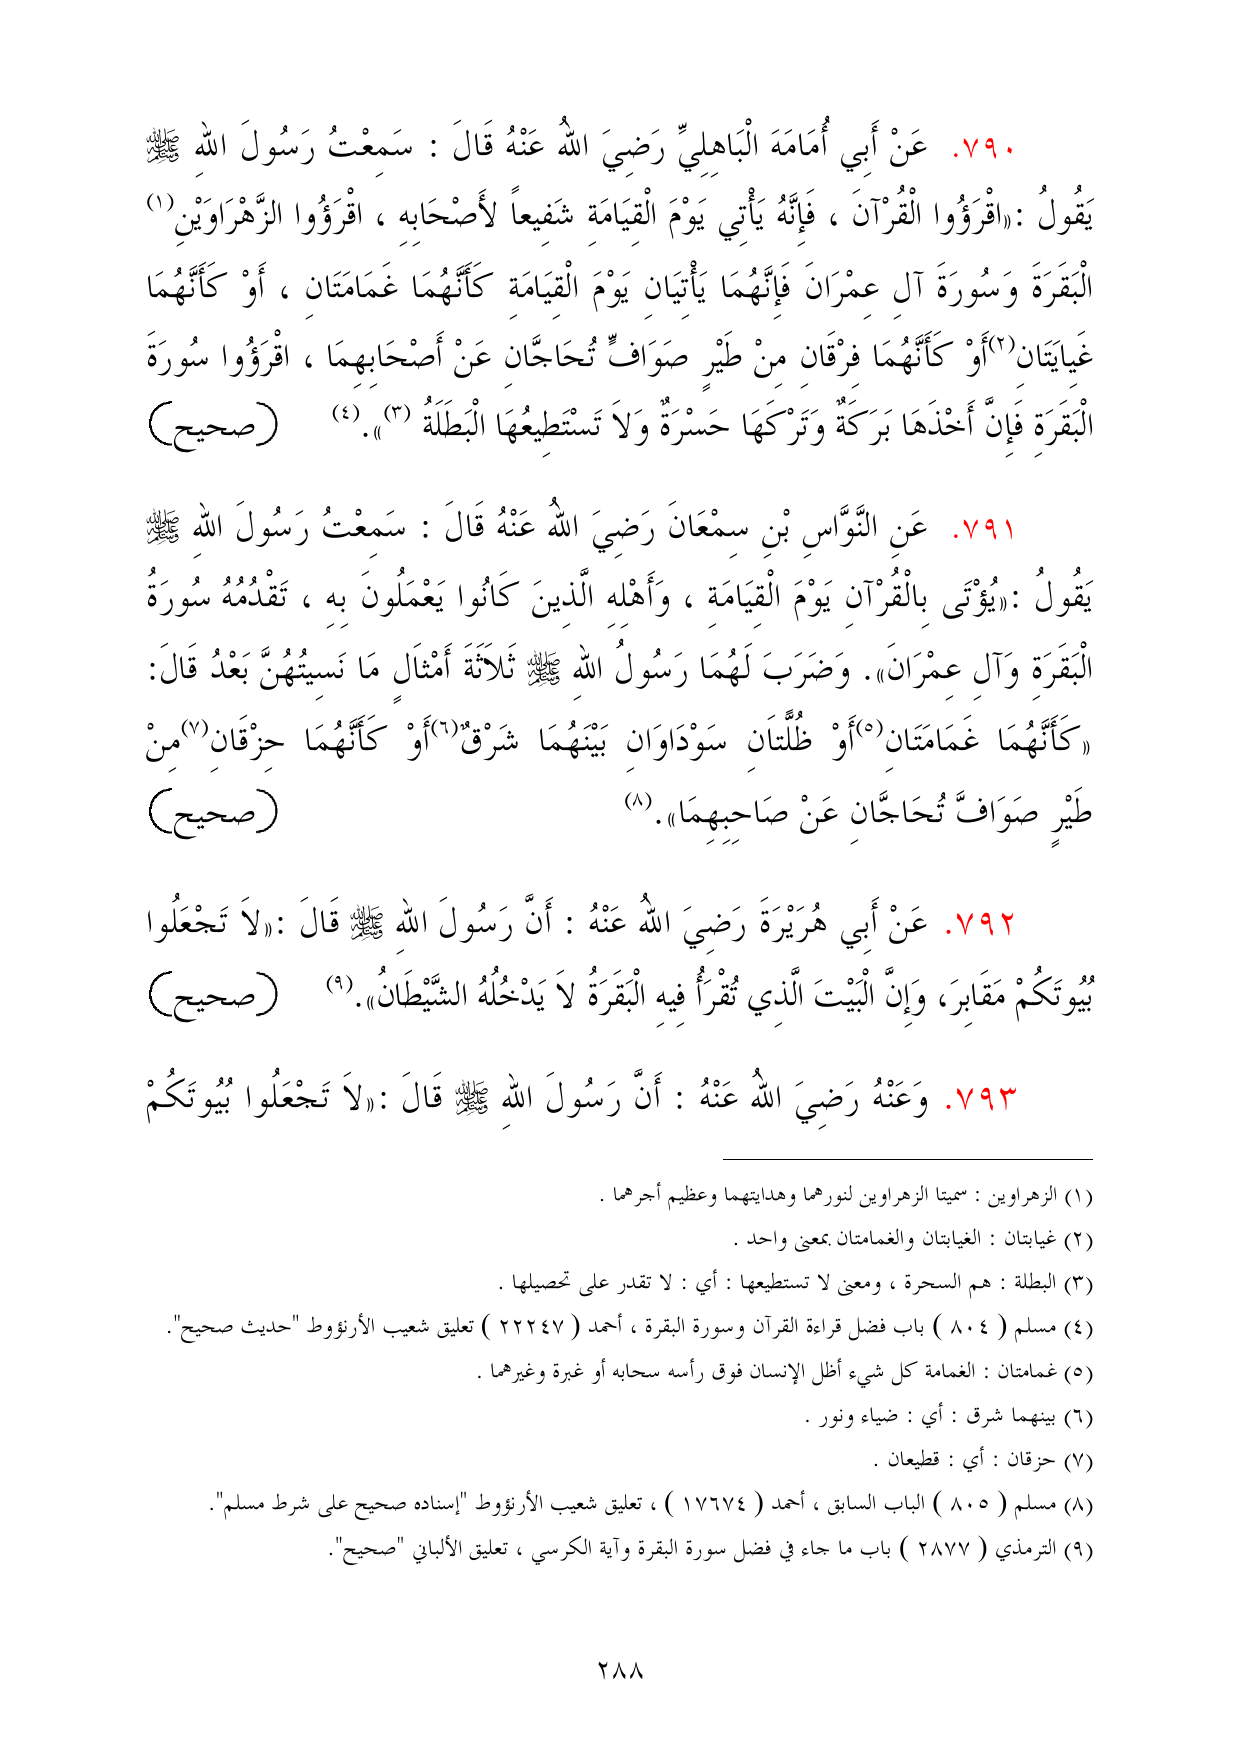 ٧٩٠. عَنْ أَبِي أُمَامَةَ الْبَاهِلِيِّ رَضِيَ اللهُ عَنْهُ قَالَ : سَمِعْتُ رَسُولَ اللهِ ﷺ
يَقُولُ :«اقْرَؤُوا الْقُرْآنَ ، فَإِنَّهُ يَأْتِي يَوْمَ الْقِيَامَةِ شَفِيعاً لأَصْحَابِهِ ، اقْرَؤُوا الزَّهْرَاوَيْنِ(١)
الْبَقَرَةَ وَسُورَةَ آلِ عِمْرَانَ فَإِنَّهُمَا يَأْتِيَانِ يَوْمَ الْقِيَامَةِ كَأَنَّهُمَا غَمَامَتَانِ ، أَوْ كَأَنَّهُمَا
غَيَايَتَانِ(٢)أَوْ كَأَنَّهُمَا فِرْقَانِ مِنْ طَيْرٍ صَوَافٍّ تُحَاجَّانِ عَنْ أَصْحَابِهِمَا ، اقْرَؤُوا سُورَةَ
الْبَقَرَةِ فَإِنَّ أَخْذَهَا بَرَكَةٌ وَتَرْكَهَا حَسْرَةٌ وَلاَ تَسْتَطِيعُهَا الْبَطَلَةُ (٣)».(٤) (صحيح)
٧٩١. عَنِ النَّوَّاسِ بْنِ سِمْعَانَ رَضِيَ اللهُ عَنْهُ قَالَ : سَمِعْتُ رَسُولَ اللهِ ﷺ
يَقُولُ :«يُؤْتَى بِالْقُرْآنِ يَوْمَ الْقِيَامَةِ ، وَأَهْلِهِ الَّذِينَ كَانُوا يَعْمَلُونَ بِهِ ، تَقْدُمُهُ سُورَةُ
الْبَقَرَةِ وَآلِ عِمْرَانَ». وَضَرَبَ لَهُمَا رَسُولُ اللهِ ﷺ ثَلاَثَةَ أَمْثَالٍ مَا نَسِيتُهُنَّ بَعْدُ قَالَ:
«كَأَنَّهُمَا غَمَامَتَانِ(٥)أَوْ ظُلَّتَانِ سَوْدَاوَانِ بَيْنَهُمَا شَرْقٌ(٦)أَوْ كَأَنَّهُمَا حِزْقَانِ(٧)مِنْ
طَيْرٍ صَوَافَّ تُحَاجَّانِ عَنْ صَاحِبِهِمَا».(٨) (صحيح)
٧٩٢. عَنْ أَبِي هُرَيْرَةَ رَضِيَ اللهُ عَنْهُ : أَنَّ رَسُولَ اللهِ ﷺ قَالَ :«لاَ تَجْعَلُوا
بُيُوتَكُمْ مَقَابِرَ، وَإِنَّ الْبَيْتَ الَّذِي تُقْرَأُ فِيهِ الْبَقَرَةُ لاَ يَدْخُلُهُ الشَّيْطَانُ».(٩) (صحيح)
٧٩٣. وَعَنْهُ رَضِيَ اللهُ عَنْهُ : أَنَّ رَسُولَ اللهِ ﷺ قَالَ :«لاَ تَجْعَلُوا بُيُوتَكُمْ
(١) الزهراوين : سميتا الزهراوين لنورهما وهدايتهما وعظيم أجرهما .
(٢) غيابتان : الغيابتان والغمامتان بمعنى واحد .
(٣) البطلة : هم السحرة ، ومعنى لا تستطيعها : أي : لا تقدر على تحصيلها .
(٤) مسلم ( ٨٠٤ ) باب فضل قراءة القرآن وسورة البقرة ، أحمد ( ٢٢٢٤٧ ) تعليق شعيب الأرنؤوط "حديث صحيح".
(٥) غمامتان : الغمامة كل شيء أظل الإنسان فوق رأسه سحابه أو غبرة وغيرهما .
(٦) بينهما شرق : أي : ضياء ونور .
(٧) حزقان : أي : قطيعان .
(٨) مسلم ( ٨٠٥ ) الباب السابق ، أحمد ( ١٧٦٧٤ ) ، تعليق شعيب الأرنؤوط "إسناده صحيح على شرط مسلم".
(٩) الترمذي ( ٢٨٧٧ ) باب ما جاء في فضل سورة البقرة وآية الكرسي ، تعليق الألباني "صحيح".
٢٨٨